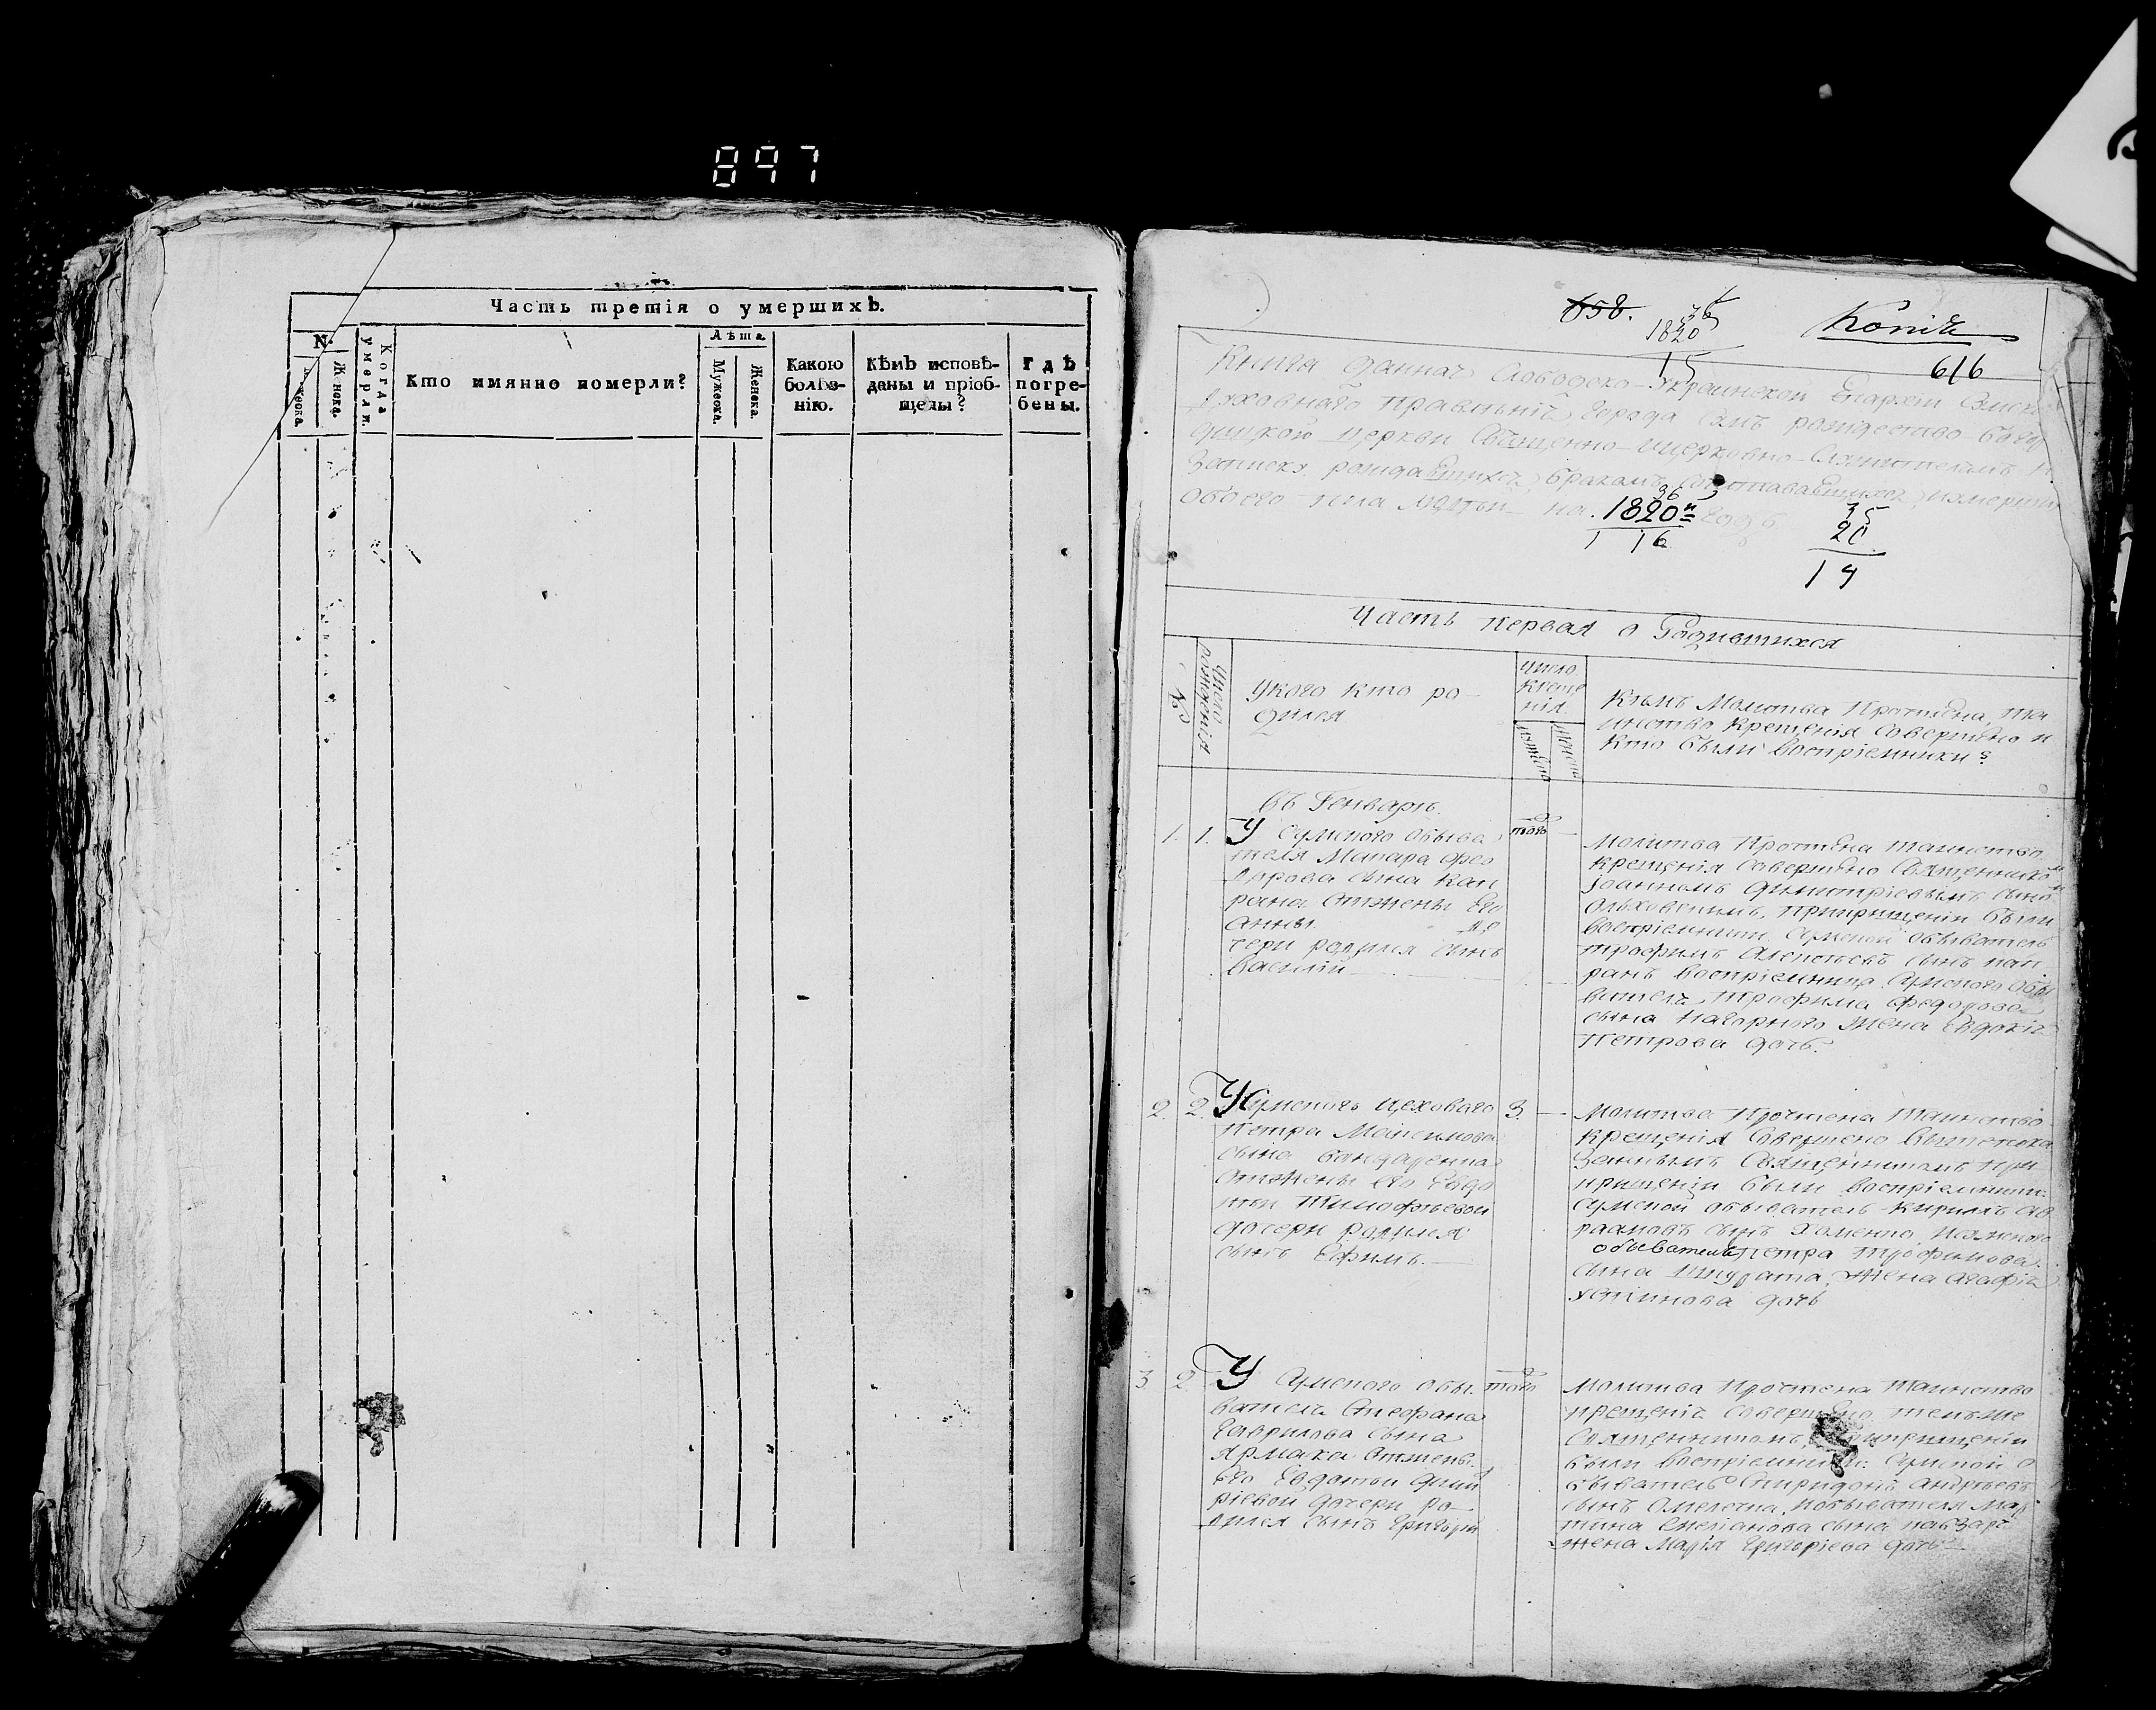 897
Часть третія о умершихъ.
N.
Женска.
Когда умерли.
Кто имянно померли?
Лѣта
Мужеска.
Женска.
Какою
болѣз-
нію.
Кѣмъ исповѣ-
даны и пріоб-
щены?
Гдѣ
погре-
бены.
658.
36
1820
15
Копія
616
Книга данная Слободско-Украинской Епархіи Сумск
Духовнаго Правленія города Сумъ рождество-богор
дицкой церкви Священно-ицерковно-Служителямъ
Записку рождавшихся, бракомъ Сочетавшихся, иумерши
обоего пола людей на 1820й годъ
36
1 16
35
20
19
Часть первая о Родившихся
№
Число рожденія
Укого кто ро-
дился
Число
креще
нія
Кѣмъ Молитва Прочтена, та
инство Крещенія Совершено и
Кто были Воспріемники?
Въ Генварѣ
1. 1. У Сумского Обыва
теля Макара Фео
дорова сына Кап
рана отжены Его
Анны до
чери родился сынъ
Василій
того
Молитва Прочтена таинство
крещенія Совершено Священнико
Іоанномъ Димитріевымъ Сыно
Ольховскимъ, Прикрещеніи были
воспріемники Сумской Обыватель
Трофимъ Алексѣевъ сынъ Кап
ранъ Воспріемница Сумского Обы
вателя Трофима Федорова
сына Нагорного жена Евдокія
Петрова дочь.
2. 2. У Сумского Цеховаго
Петра Максимова
сына Бандаренка
Отжены его Федо
тіи Тимофѣевой
дочери родился
сынъ Ефимъ.
3.
Молитва Прочтена Таинство
крещенія Совершено Вышепока
заннымъ Священникомъ При
крещеніи были Воспріемники:
Сумской обыватель Кирилъ Ав
рамовъ сынъ Хоменко, Исумского
обывателя Петра Трофимова
сына Шкурата, жена Агафія
Устинова дочь
3 2 У Сумского Обы
вателя Стефана
Гаврилова Сына
Ярмака Отжены
Его Федотьи Дмит
ріевой дочери Ро
дился сынъ Григорій
того
Молитва Прочтена Таинство
крещенія Совершено темъже
Священникомъ, Прикрещеніи
были Воспріемники: Сумской О
быватель Спиридонъ Андрѣевъ
сынъ Омелечка, иобывателя Мар
тина Емеліанова сына
жена Марія Григоріева дочь